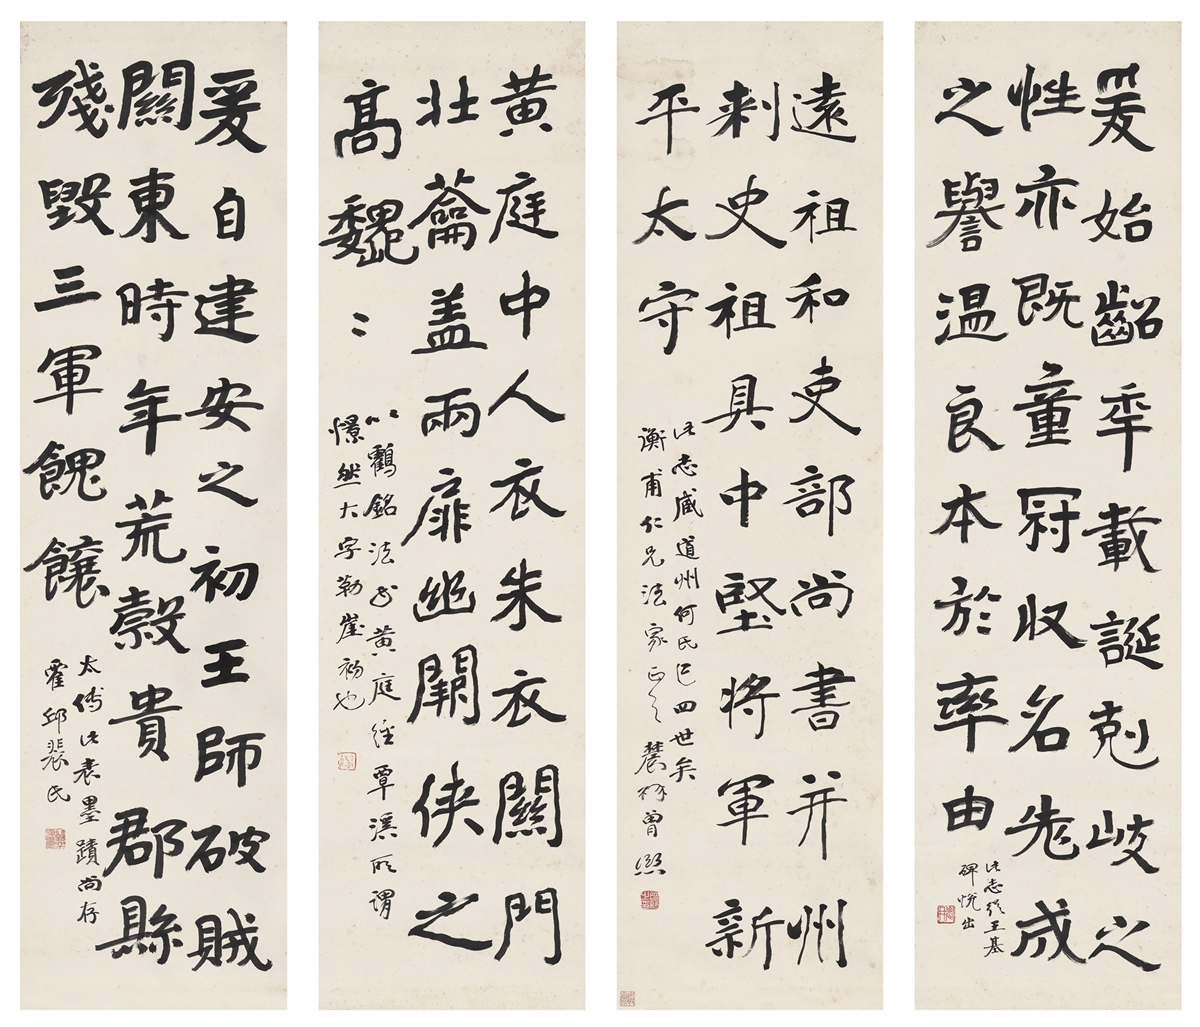 爰始齠秊載誕剋岐之
性亦既童冠収名先成
之譽溫良本於率由
此志從王基
碑悅出
遠祖和吏部尚書并州
刺史祖具中堅將軍新
平太守
此志藏道州何氏已四世矣
衡甫仁兄法家正之 農髯曾熙
黃庭中人衣朱衣關門
壯蘥盖兩扉幽闕俠之
高巍〻
以鶴銘法書黃庭經覃溪所謂
憬然大字勒崖初也
爰自建安之初王師破賊
關東時年荒穀貴郡縣
殘毀三軍餽饟
太傅此表墨蹟尚存
霍邱裴氏